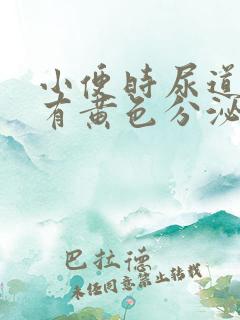 小便时尿道
有黄色分泌
巴拉德
未经同意禁止转载